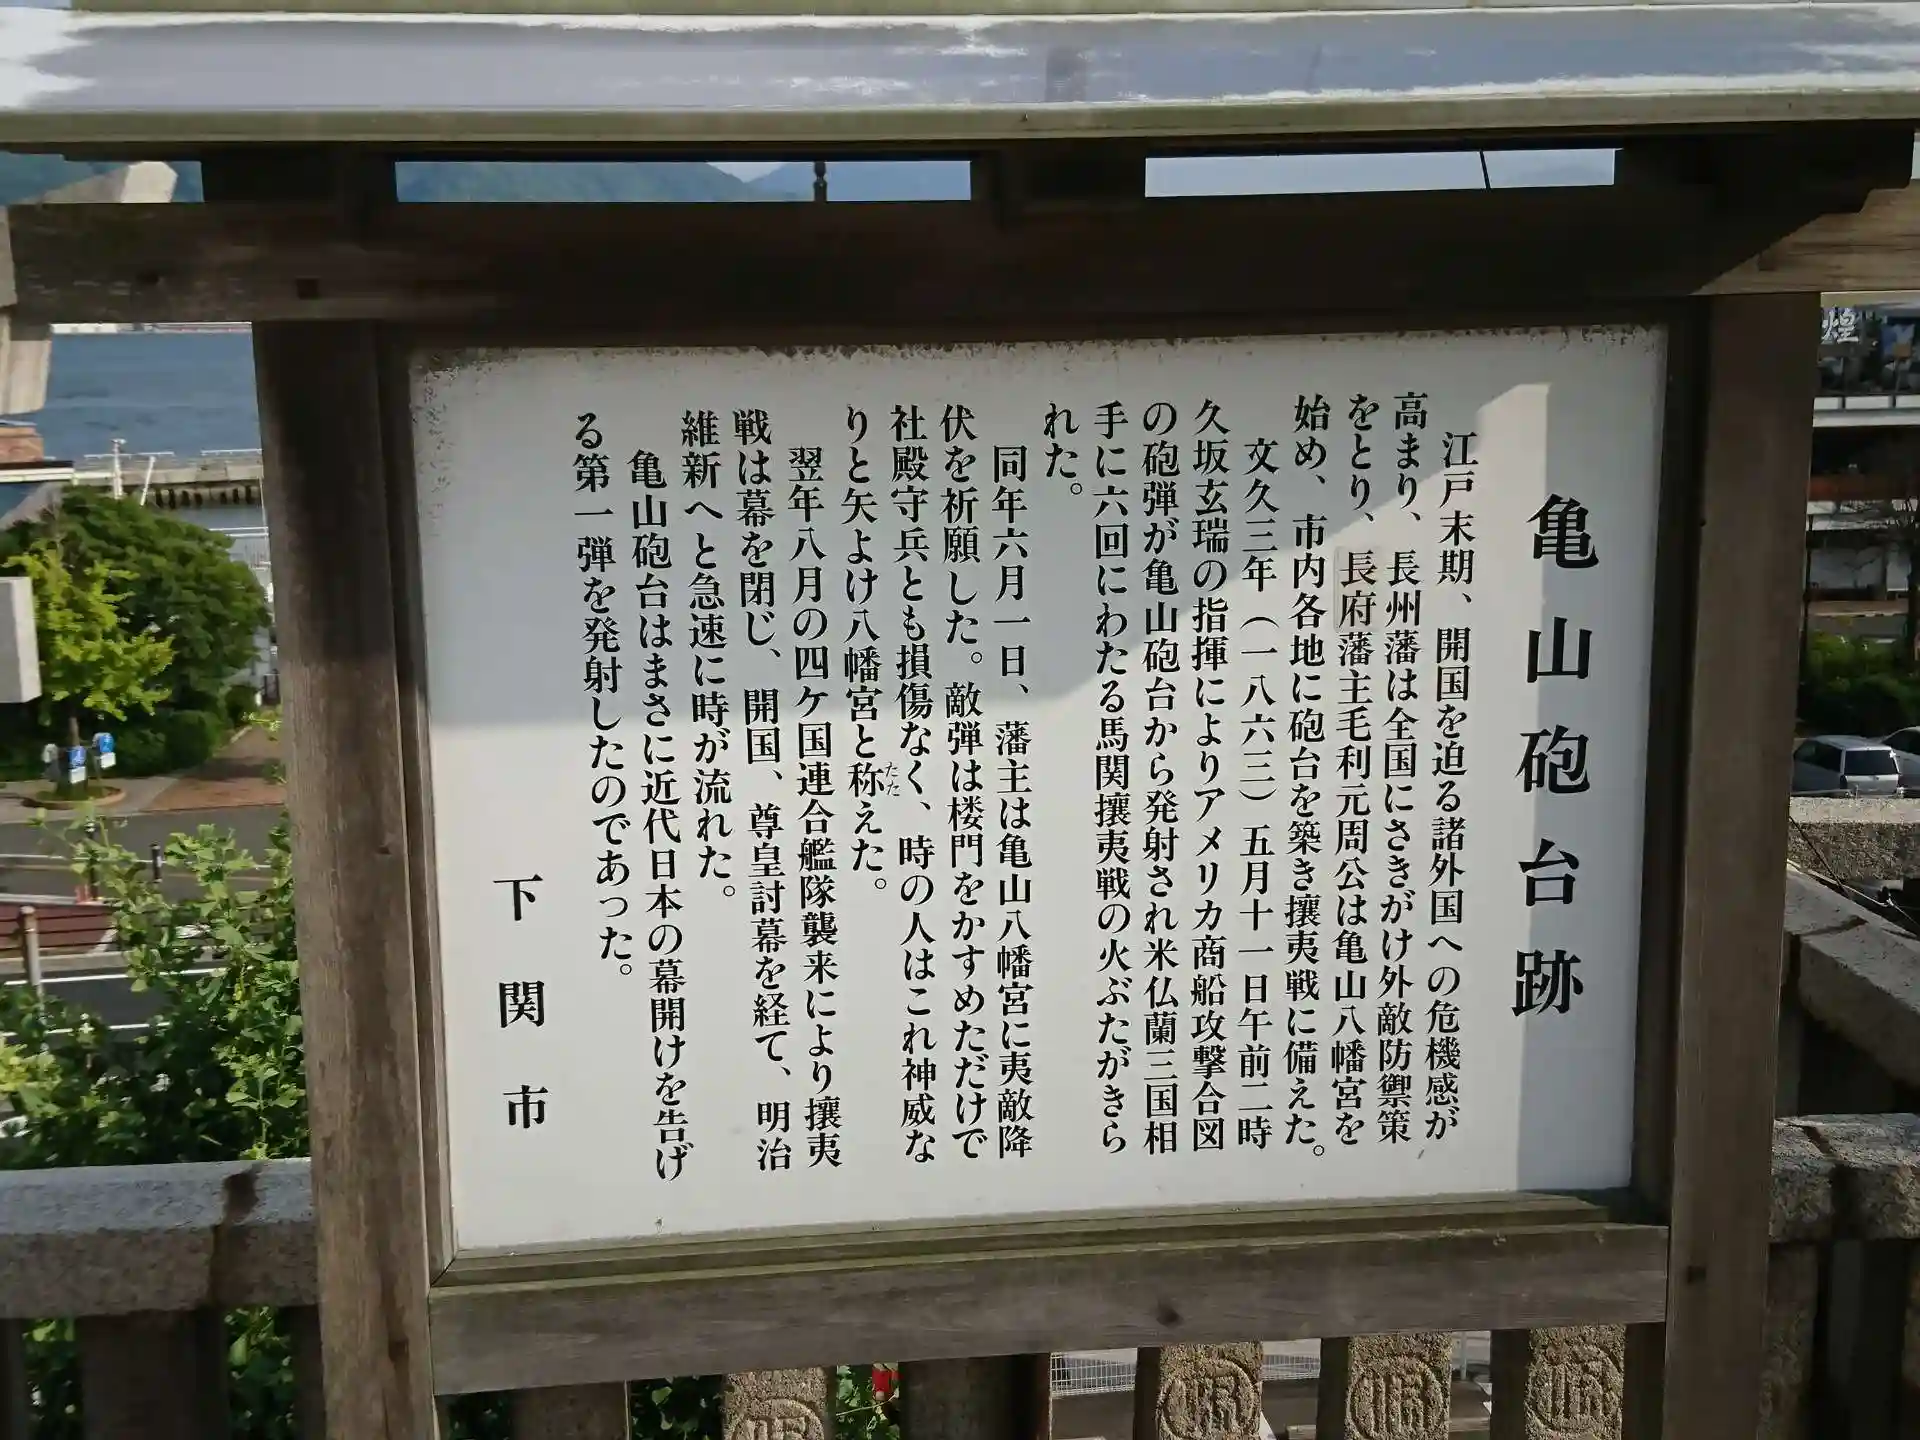 亀山砲台跡
江戸末期、開国を迫る諸外国への危機感が
高まり、長州藩は全国にさきがけ外敵防禦策
をとり、長府藩主毛利元周公は亀山八幡宮を
始め、市内各地に砲台を築き攘夷戦に備えた。
文久三年（一八六三）五月十一日午前二時
久坂玄瑞の指揮によりアメリカ商船攻撃合図
の砲弾が亀山砲台から発射され米仏蘭三国相
手に六回にわたる馬関攘夷戦の火ぶたがきら
れた。
同年六月一日、藩主は亀山八幡宮に夷敵降
伏を祈願した。敵弾は楼門をかすめただけで
社殿守兵とも損傷なく、時の人はこれ神威な
りと矢よけ八幡宮と称えた。
たた
翌年八月の四ケ国連合艦隊襲来により攘夷
戦は幕を閉じ、開国、尊皇討幕を経て、明治
維新へと急速に時が流れた。
亀山砲台はまさに近代日本の幕開けを告げ
る第一弾を発射したのであった。
下関市
煌